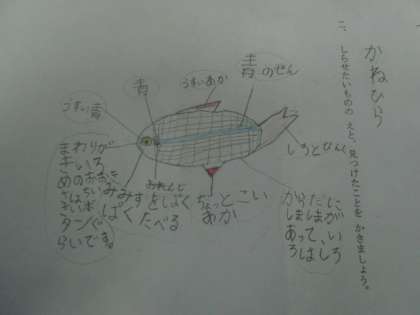 かねひら
二、しらせたいものの えと、見つけたことを かきましょう。
青のせん
うすいあか
青
うすい青
しろとぴんく
からだに
しましまが
あって、い
ろはしろ
ちょっとこい
あか
おれんじ
みみずをぱくぱく
たべる
まわりが
きいろ